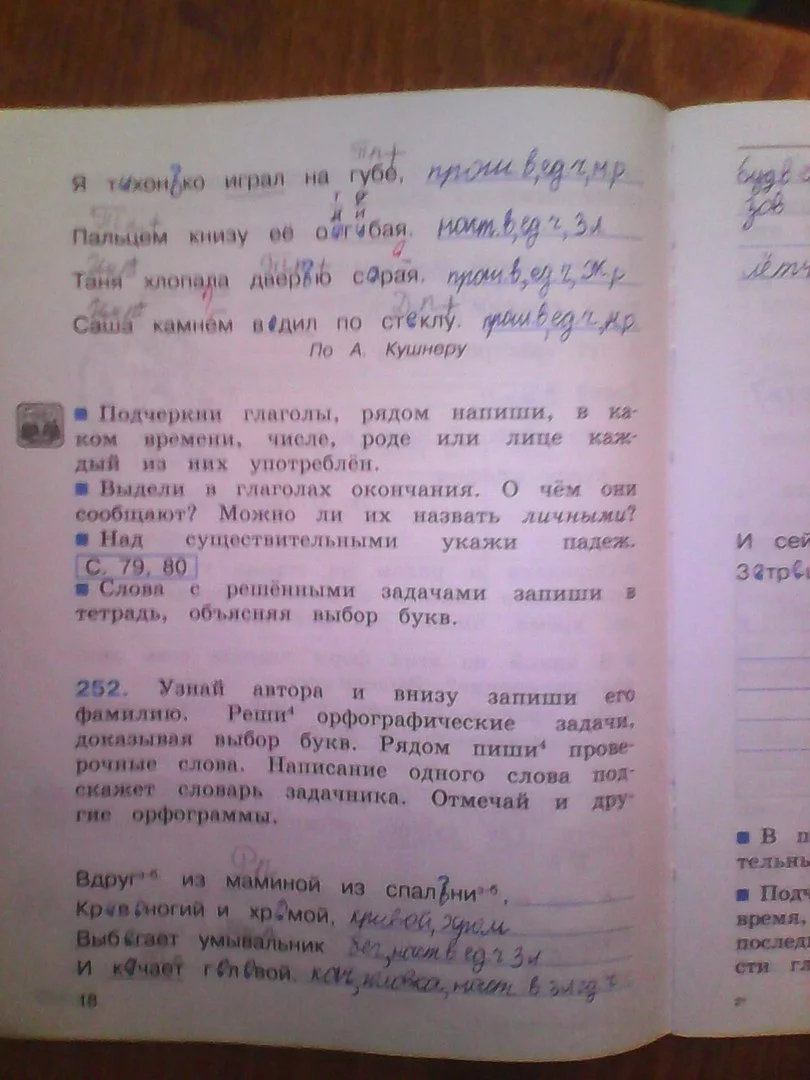 Я тихонько играл на губе, прош в, ед ч, м р
Пальцем книзу её о г бая. наст. в, ед ч, 3 л
Таня хлопала дверью сарая, прош в, ед ч, ж р
Саша камнем водил по стеклу. прош в, ед ч, м р
По А. Кушнеру
Подчеркни глаголы, рядом напиши, в ка-
ком времени, числе, роде или лице каж-
дый из них употреблён.
Выдели в глаголах окончания. О чём они
сообщают? Можно ли их назвать личными?
Над существительными укажи падеж.
С. 79, 80
Слова с решёнными задачами запиши в
тетрадь, объясняя выбор букв.
252. Узнай автора и внизу запиши его
фамилию. Реши⁴ орфографические задачи,
доказывая выбор букв. Рядом пиши⁴ прове-
рочные слова. Написание одного слова под-
скажет словарь задачника. Отмечай и дру-
гие орфограммы.
Рп
Вдруг из маминой из спальни,
Кривоногий и хромой, кривой, хром
Выбегает умывальник бег, наст в ед ч 3 л
И качает головой. кач, наст в 3 л ед ч
18
будв
зов
лётч
И сей
В п
тельны
Подч
время,
послед
сти гл